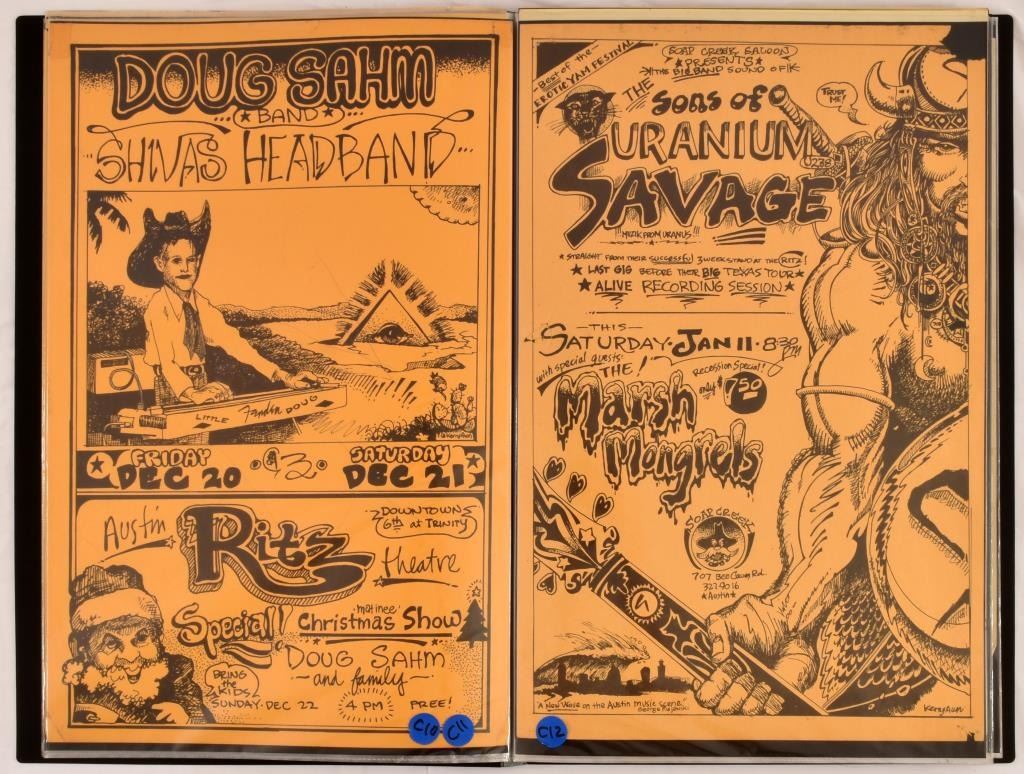 DOUG SAHM
...★BAND★...
..SHIVAS HEADBAND...
LITTLE Fender DOUG
©KerryAwn
FRIDAY
DEC 20
$3
SATURDAY
DEC 21
Austin
Ritz
theatre
DOWNTOWN
6th at TRINITY
Special!
matinee
Christmas Show
DOUG SAHM
~and family~
BRING
the
KIDS
SUNDAY· DEC 22
4 PM
FREE!
C10
C11
Best of the
EROTIC YAM FESTIVAL
SOAP CREEK SALOON
★PRESENTS★
THE BIG BAND SOUND OF
THE
SONS OF
URANIUM
238
SAVAGE
!!MUZIK FROM URANUS!!!
TRUST
ME!
★STRAIGHT FROM THEIR SUCCESSFUL 3 WEEK STAND AT THE RITZ!
★ LAST GIG BEFORE THEIR BIG TEXAS TOUR★
★ ALIVE RECORDING SESSION★
—THIS—
SATURDAY·JAN 11·8:30 PM
with special guests·
THE!
RECESSION SPECIAL!
only $7.50
Marsh
Mongrels
SOAP CREEK
707 Bee Caves Rd.
327·9016
★Austin★
"A New Wave on the Austin music scene"
KerryAwn
C12